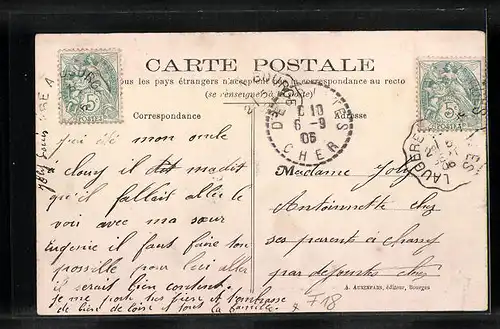 CARTE POSTALE
ous les pays étrangers n'acceptent la correspondance au recto
(se renseigner à la Poste)
Correspondance
Adresse
6-9
05
CHER
j'ai été mon oncle
a cloug il dit madit
qu'il fallait allée le
voir avec ma sœur
Eugenie il faus faire ton
posseille pour lei aller
il serait bien content
je me porte tres bien et t'embrasse
de bien de loin et tous la famille
Madame Joly
Antoinnette chez
ses parents à chassy
par defourts cher
A. AUXENFANS, éditeur, Bourges
718